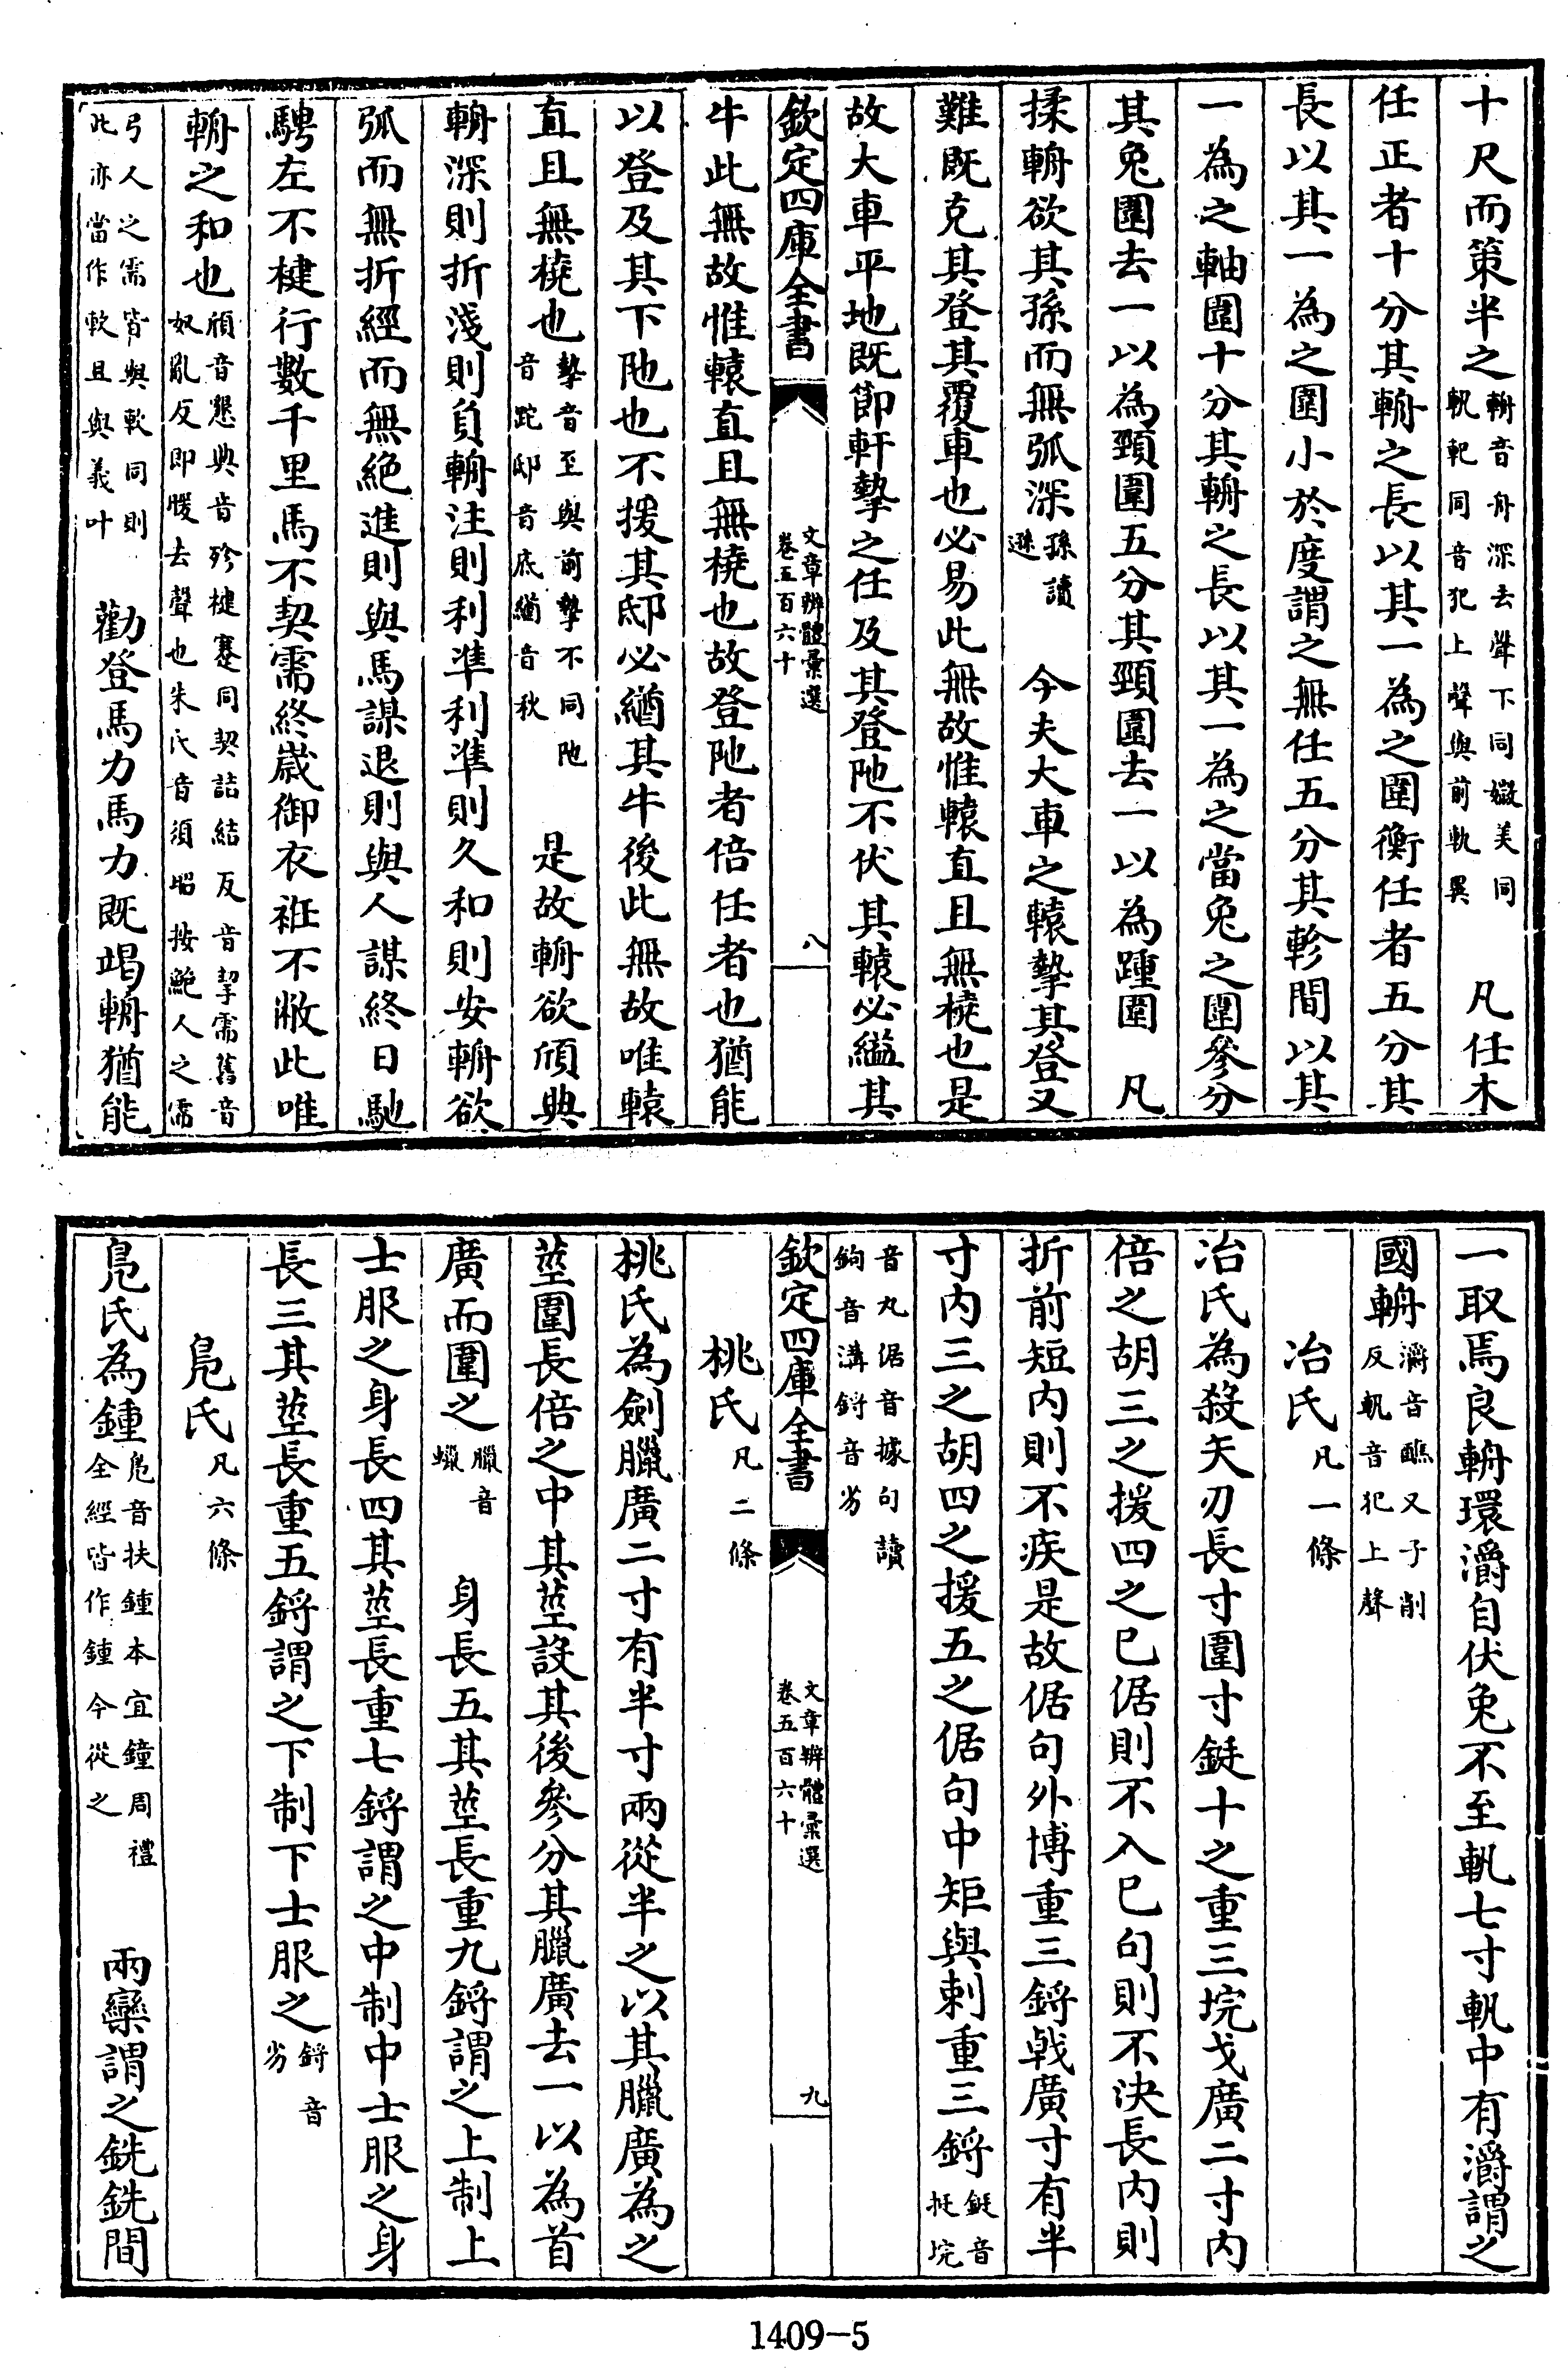 十尺而策半之輈音舟深去聲下同媺美同
軓軋同音犯上聲與前軌異　凡任木
任正者十分其輈之長以其一為之圍衡任者五分其
長以其一為之圍小於度謂之無任五分其軫間以其
一為之軸圍十分其輈之長以其一為之當兔之圍參分
其兔圍去一以為頸圍五分其頸圍去一以為踵圍　凡
揉輈欲其孫而無弧深孫讀
遜　今夫大車之轅摯其登又
難既克其登其覆車也必易此無故惟轅直且無橈也是
故大車平地既節軒摯之任及其登阤不伏其轅必縊其
欽定四庫全書
文章辨體彙選
卷五百六十
八
牛此無故惟轅直且無橈也故登阤者倍任者也猶能
以登及其下阤也不援其邸必緧其牛後此無故唯轅
直且無橈也摯音至與前摯不同阤
音跎邸音底緧音秋　是故輈欲頎典
輈深則折淺則負輈注則利準利準則久和則安輈欲
弧而無折經而無絕進則與馬謀退則與人謀終日馳
騁左不楗行數千里馬不契需終歲御衣衽不敝此唯
輈之和也頎音懇典音殄楗蹇同契詰結反音挈需舊音
奴亂反即愞去聲也朱氏音須昭按鮑人之需
弓人之需皆與軟同則
此亦當作軟且與義叶　勸登馬力馬力既竭輈猶能
一取焉良輈環灂自伏兔不至軓七寸軓中有灂謂之
國輈灂音醮又子削
反軓音犯上聲
冶氏凡一條
冶氏為殺矢刃長寸圍寸鋌十之重三垸戈廣二寸內
倍之胡三之援四之已倨則不入已句則不決長內則
折前短內則不疾是故倨句外博重三鋝戟廣寸有半
寸內三之胡四之援五之倨句中矩與刺重三鋝鋌音
挺垸
音丸倨音據句讀
鉤音溝鋝音劣
欽定四庫全書
文章辨體彙選
卷五百六十
九
桃氏凡二條
桃氏為劍臘廣二寸有半寸兩從半之以其臘廣為之
莖圍長倍之中其莖設其後參分其臘廣去一以為首
廣而圍之臘音
蠟　身長五其莖長重九鋝謂之上制上
士服之身長四其莖長重七鋝謂之中制中士服之身
長三其莖長重五鋝謂之下制下士服之鋝音
劣
鳧氏凡六條
鳧氏為鍾鳧音扶鍾本宜鐘周禮
全經皆作鍾今從之　兩欒謂之銑銑間
1409-5